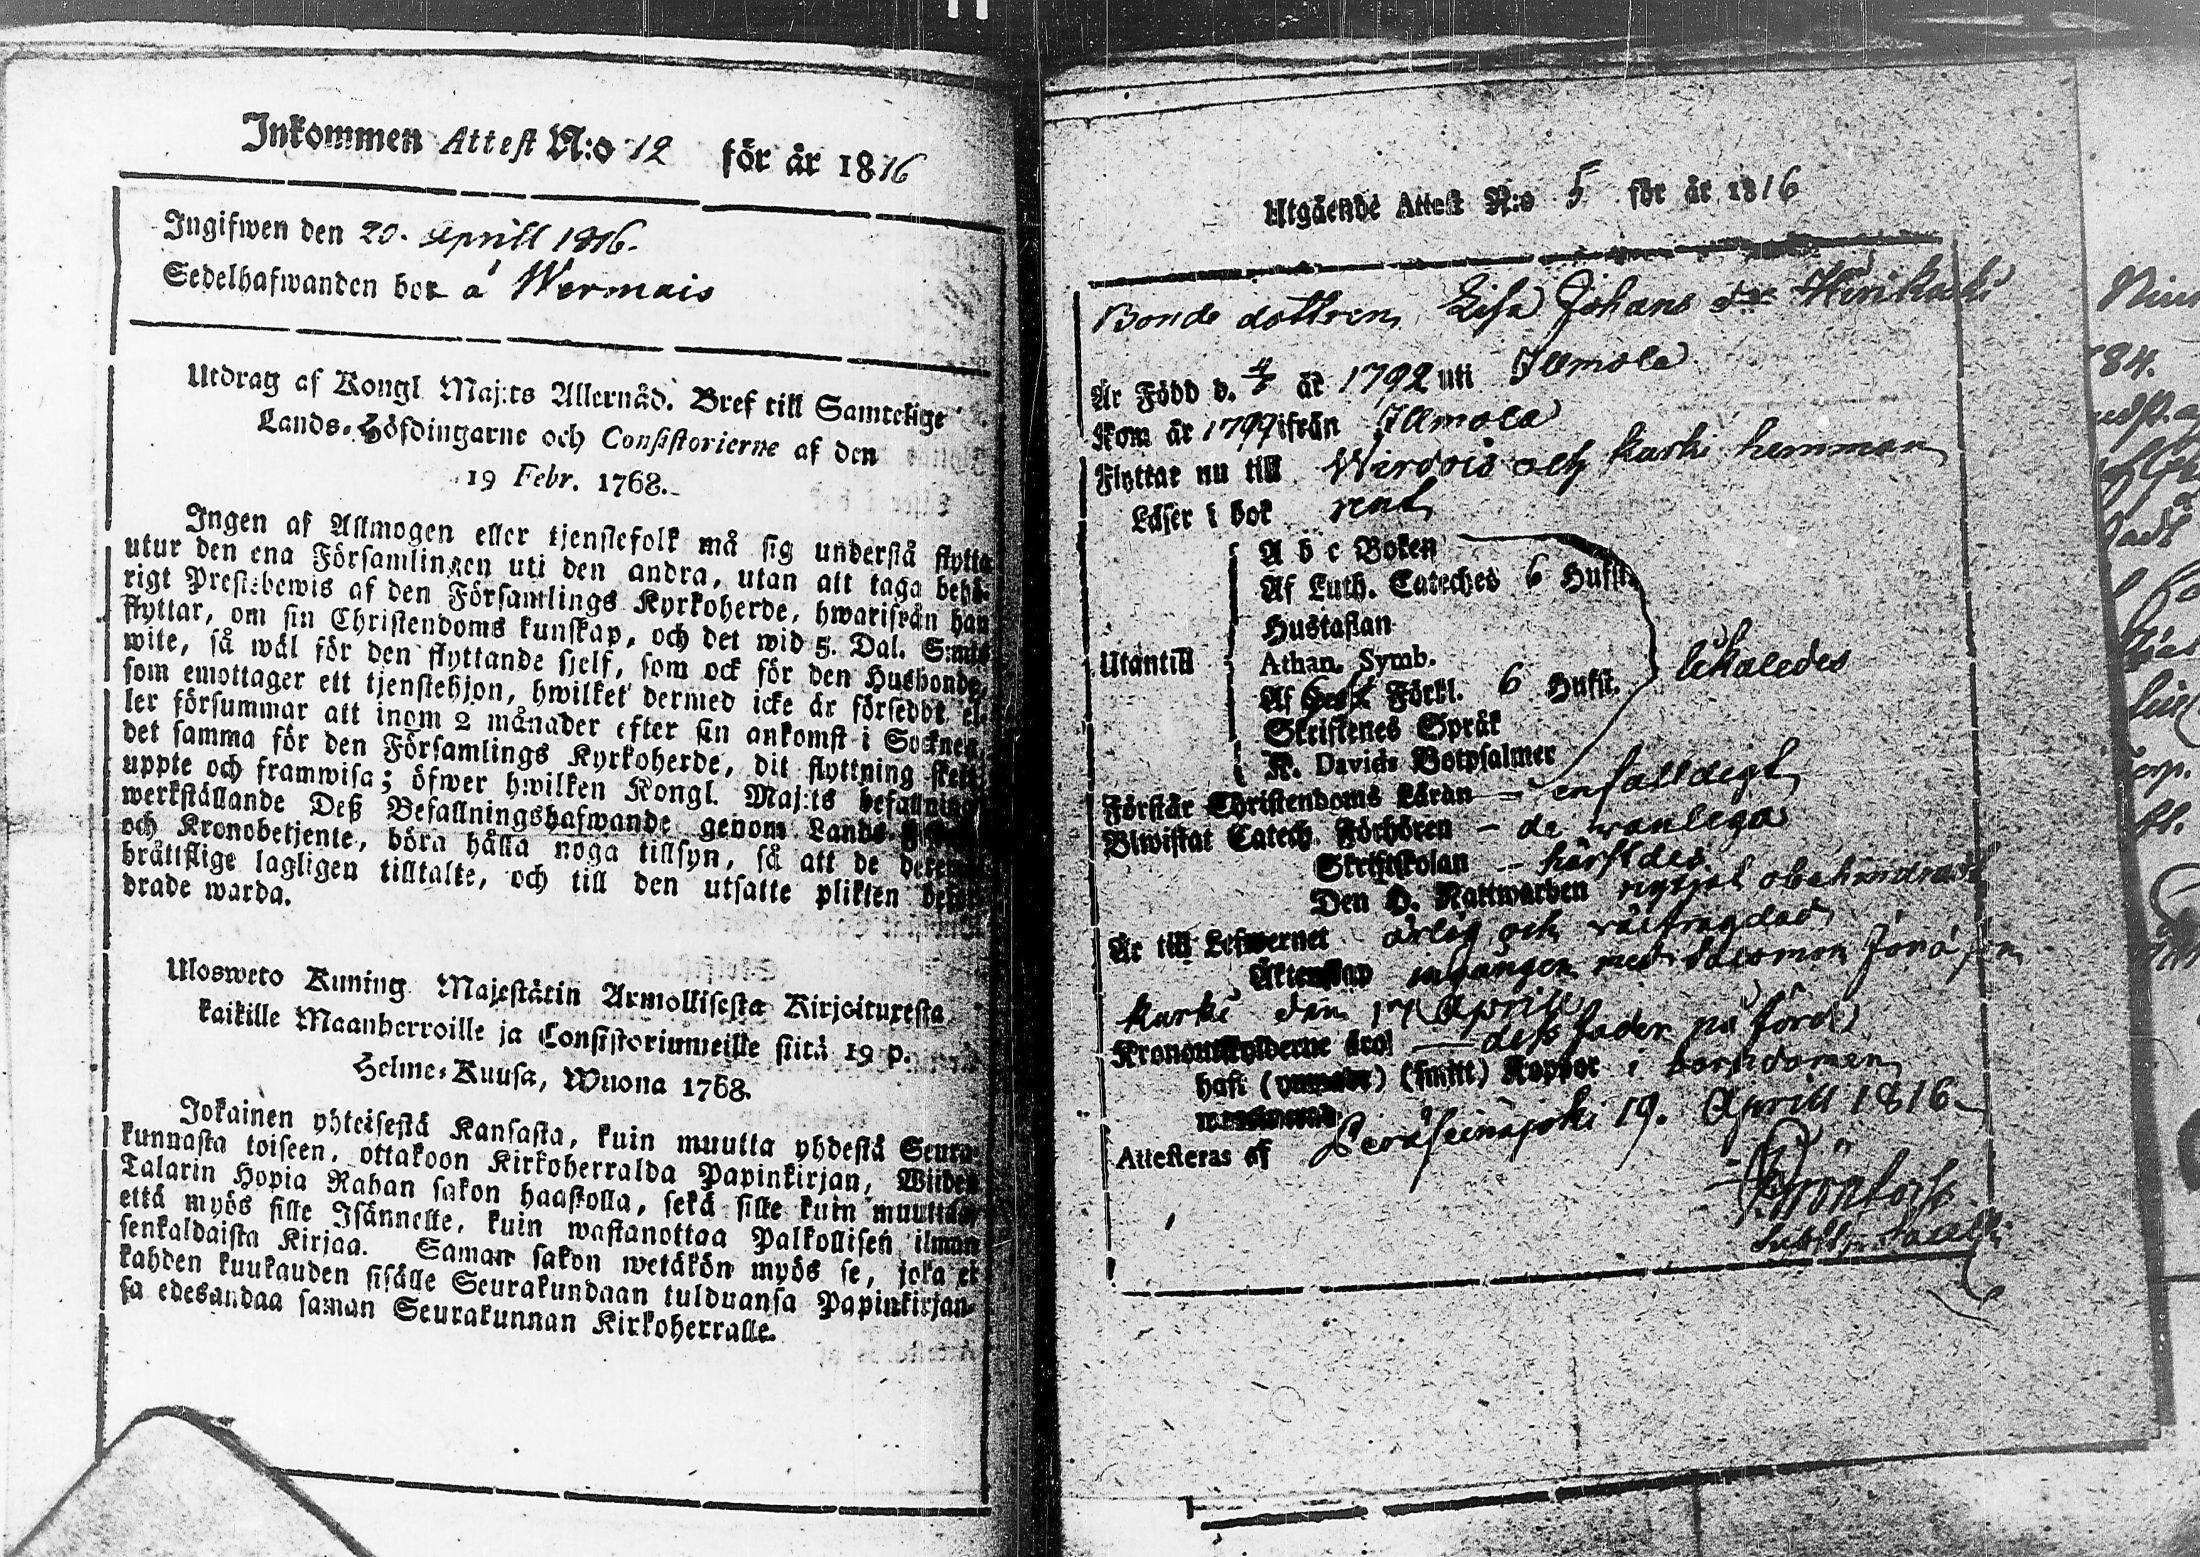 Inkommen Attest N:o 12 för år 1816
Ingifwen den 20. Aprill 1816.
Sedelhafwanden bor å Wermais
Utdrag af Kongl Maj:ts Allernåd. Bref till Samtelige
Lands-Höfdingarne och Consistorierne af den
19 Febr. 1768.
Ingen af Allmogen eller tjenstefolk må sig understå flytta
utur den ena Församlingen uti den andra, utan att taga behö-
rigt Prestebewis af den Församlings Kyrkoherde, hwarifrån han
flyttar, om sin Christendoms kunskap, och det wid 5. Dal. S:mts
wite, så wäl för den flyttande sjelf, som ock för den Husbonde,
som emottager ett tjenstehjon, hwilket dermed icke är försedt el-
ler försummar att inom 2 månader efter sin ankomst i Socknen,
det samma för den Församlings Kyrkoherde, dit flyttning skett,
uppte och framwisa; öfwer hwilken Kongl. Maj:ts befallnings
werkställande Deß Befallningshafwande genom Lands-
och Kronobetjente, böra hålla noga tillsyn, så att de
bråttslige lagligen tilltalte, och till den utsatte plikten befor-
drade warda.
Ulosweto Kuning. Majestätin Armollisesta Kirjoituxesta
kaikille Maanherroille ja Consistoriumeille siitä 19 p.
Helme-Kuusa, Wuona 1768.
Jokainen yhteisestä Kansasta, kuin muutta yhdestä Seura-
kunnasta toiseen, ottakoon Kirkoherralda Papinkirjan, Wiiden
Talarin Hopia Rahan sakon haastolla, sekä sille kuin muuttaa,
että myös sille Isännelle, kuin wastanottaa Palkollisen ilman
senkaldaista Kirjaa. Saman sakon wetäkön myös se, joka ei
kahden kuukauden sisälle Seurakundaan tulduansa Papinkirjan-
sa edesandaa saman Seurakunnan Kirkoherralle.
Utgående Attest N:o 5 för år 1816
Bonde dottren Lisa Johans dr
Är Född d. 4/5 år 1792 uti Illmola
Kom år 1799 ifrån Illmola
Flyttar nu till Wirdois och Karki hemman
Läser i bok rent
A b c Boken
Af Luth. Cateches 6 Hufst.
Hustaflan
Utantill Athan. Symb. likaledes
Af Förkl. 6 Hufst.
Skriftenes Språk
K. Davids Botpsalmer
Förstår Christendoms Läran - enfalldigt
Biwistat Catech. Förhören - de wanliga
Skriftskolan -
Den H. Nattwarden nytjat obehindradt
Är till Lefwernet ärlig och wälfrägdad
Äktenskap ingången med Salomon Jonasson
Karki den 17 Aprill
Kronoutskylderne äro - dess fader på förd
haft () (smitt.) Koppor i barndomen
Attesteras af Peräseinäjoki 19. Aprill 1816